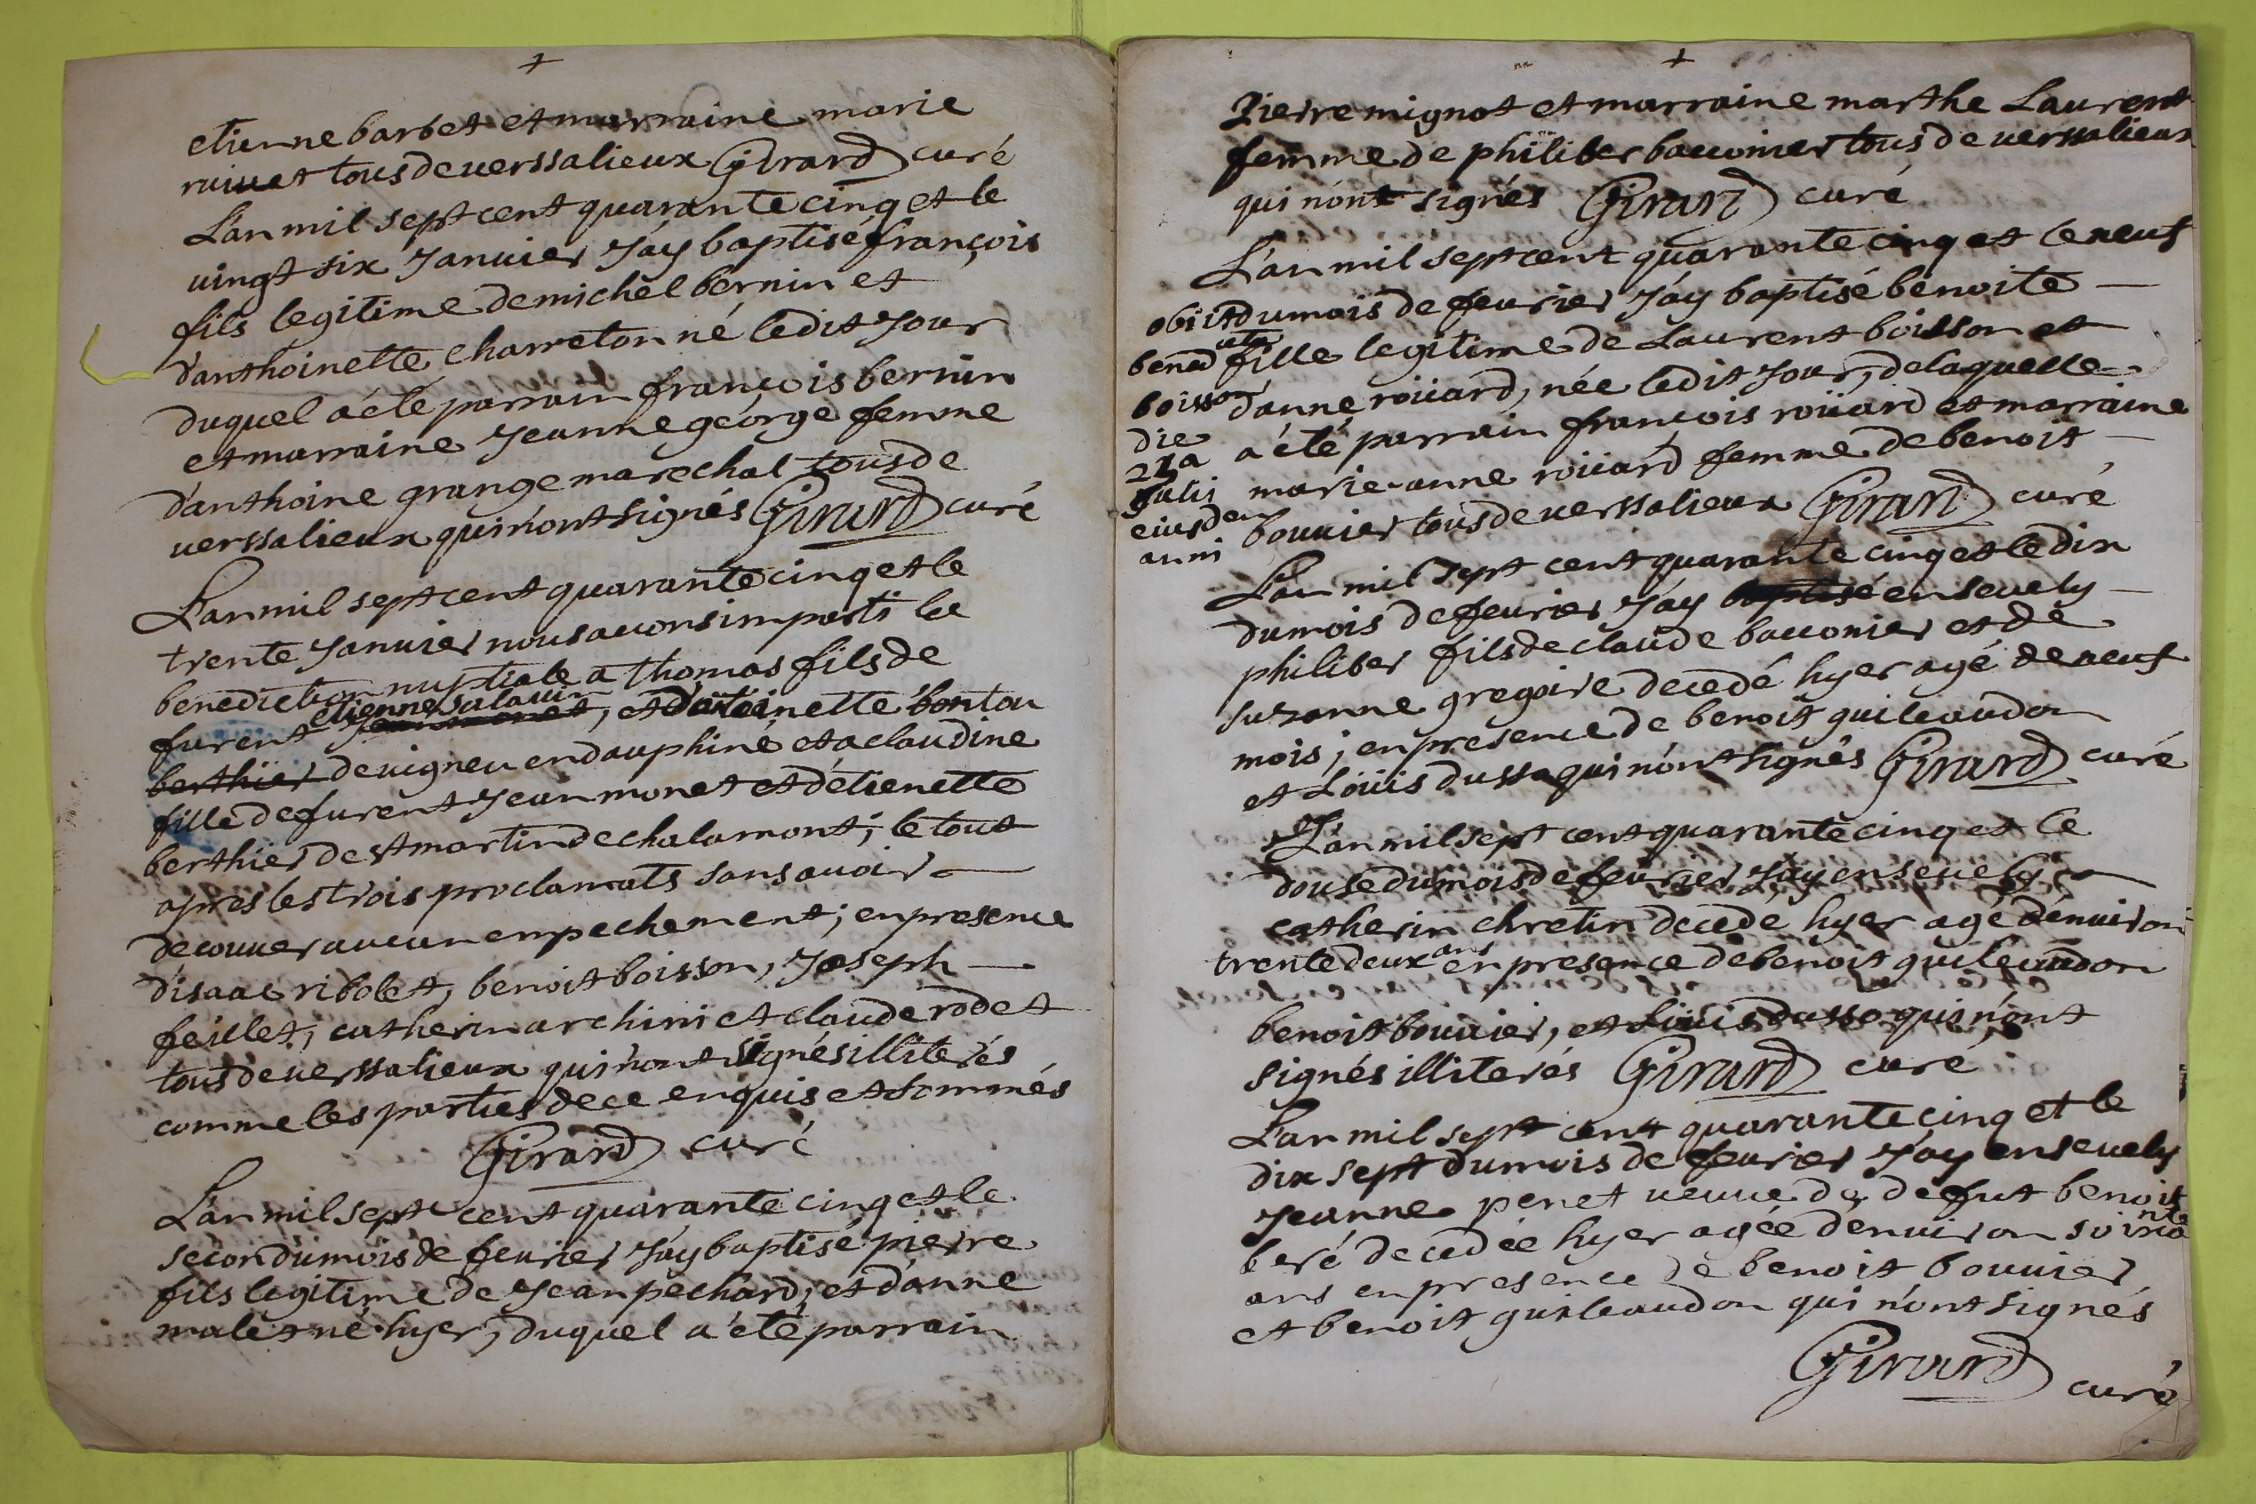 +
etienne barbet et marraine marie
ruivet tous de verssalieux Girard curé
L'an mil sept cent quarante cinq et le
vingt six Janvier J'ay baptisé françois
fils legitime de michel bernin et
d'anthoinette charreton né ledit Jour
duquel a été parrain françois bernin
et marraine Jeanne george femme
d'anthoine grange marechal tous de
verssalieux qui n'ont signés Girard curé
L'an mil sept cent quarante cinq et le
trente Janvier nous avons imparti la
benediction nuptiale a thomas fils de
etienne
furent Jean monet, et d' bontou
berthier de vigneu en dauphiné et a claudine
fille de furent Jean monet et d'etienette
berthier de st martin de chalamont; le tout
apres les trois proclamats sans avoir
decouver aucun empechement; en presence
d'isaac ribolet, benoit boisson, Joseph
feillet, catherin archini et claude rodet
tous de verssalieux qui n'ont signés illiterés
comme les parties de ce enquis et sommés
Girard curé
L'an mil sept cent quarante cinq et le
second du mois de fevrier J'ay baptisé pierre
fils legitime de Jean pechard, et d'anne
malet né hyer, duquel a été parrain
+
Pierre mignot et marraine marthe Laurent
femme de philiber bacconier tous de verssalieux
qui n'ont signés Girard curé
L'an mil sept cent quarante cinq et le neuf
du mois de fevrier J'ay baptisé benoite
fille legitime de Laurent boisson et
d'anne roüard, née ledit Jour, de laquelle
a été parrain françois roüard et marraine
marie-anne roüard femme de benoit
bouvier tous de verssalieux Girard curé
obiit
bened
boisson
die
21a
Julij
eiusdem
anni
L'an mil sept cent quarante cinq et le dix
du mois de fevrier J'ay baptisé ensevely
philiber fils de claude bacconier et de
suzanne gregoire decedé hyer agé de neuf
mois; en presence de benoit guileaudon
et Loüis dussa qui n'ont signés Girard curé
L'an mil sept cent quarante cinq et le
douse du mois de fevrier J'ay ensevely
catherin chretin decedé hyer agé d'environ
trente deux ans en presence de benoit guileaudon
benoit bouvier, et Loüis dussa qui n'ont
signés illiterés Girard curé
L'an mil sept cent quarante cinq et le
dix sept du mois de fevrier J'ay ensevely
Jeanne penet veuve de defut benoit
beré decedée hyer agée d'environ soixante
ans en presence de benoit bouvier
et benoit guileaudon qui n'ont signés
Girard curé